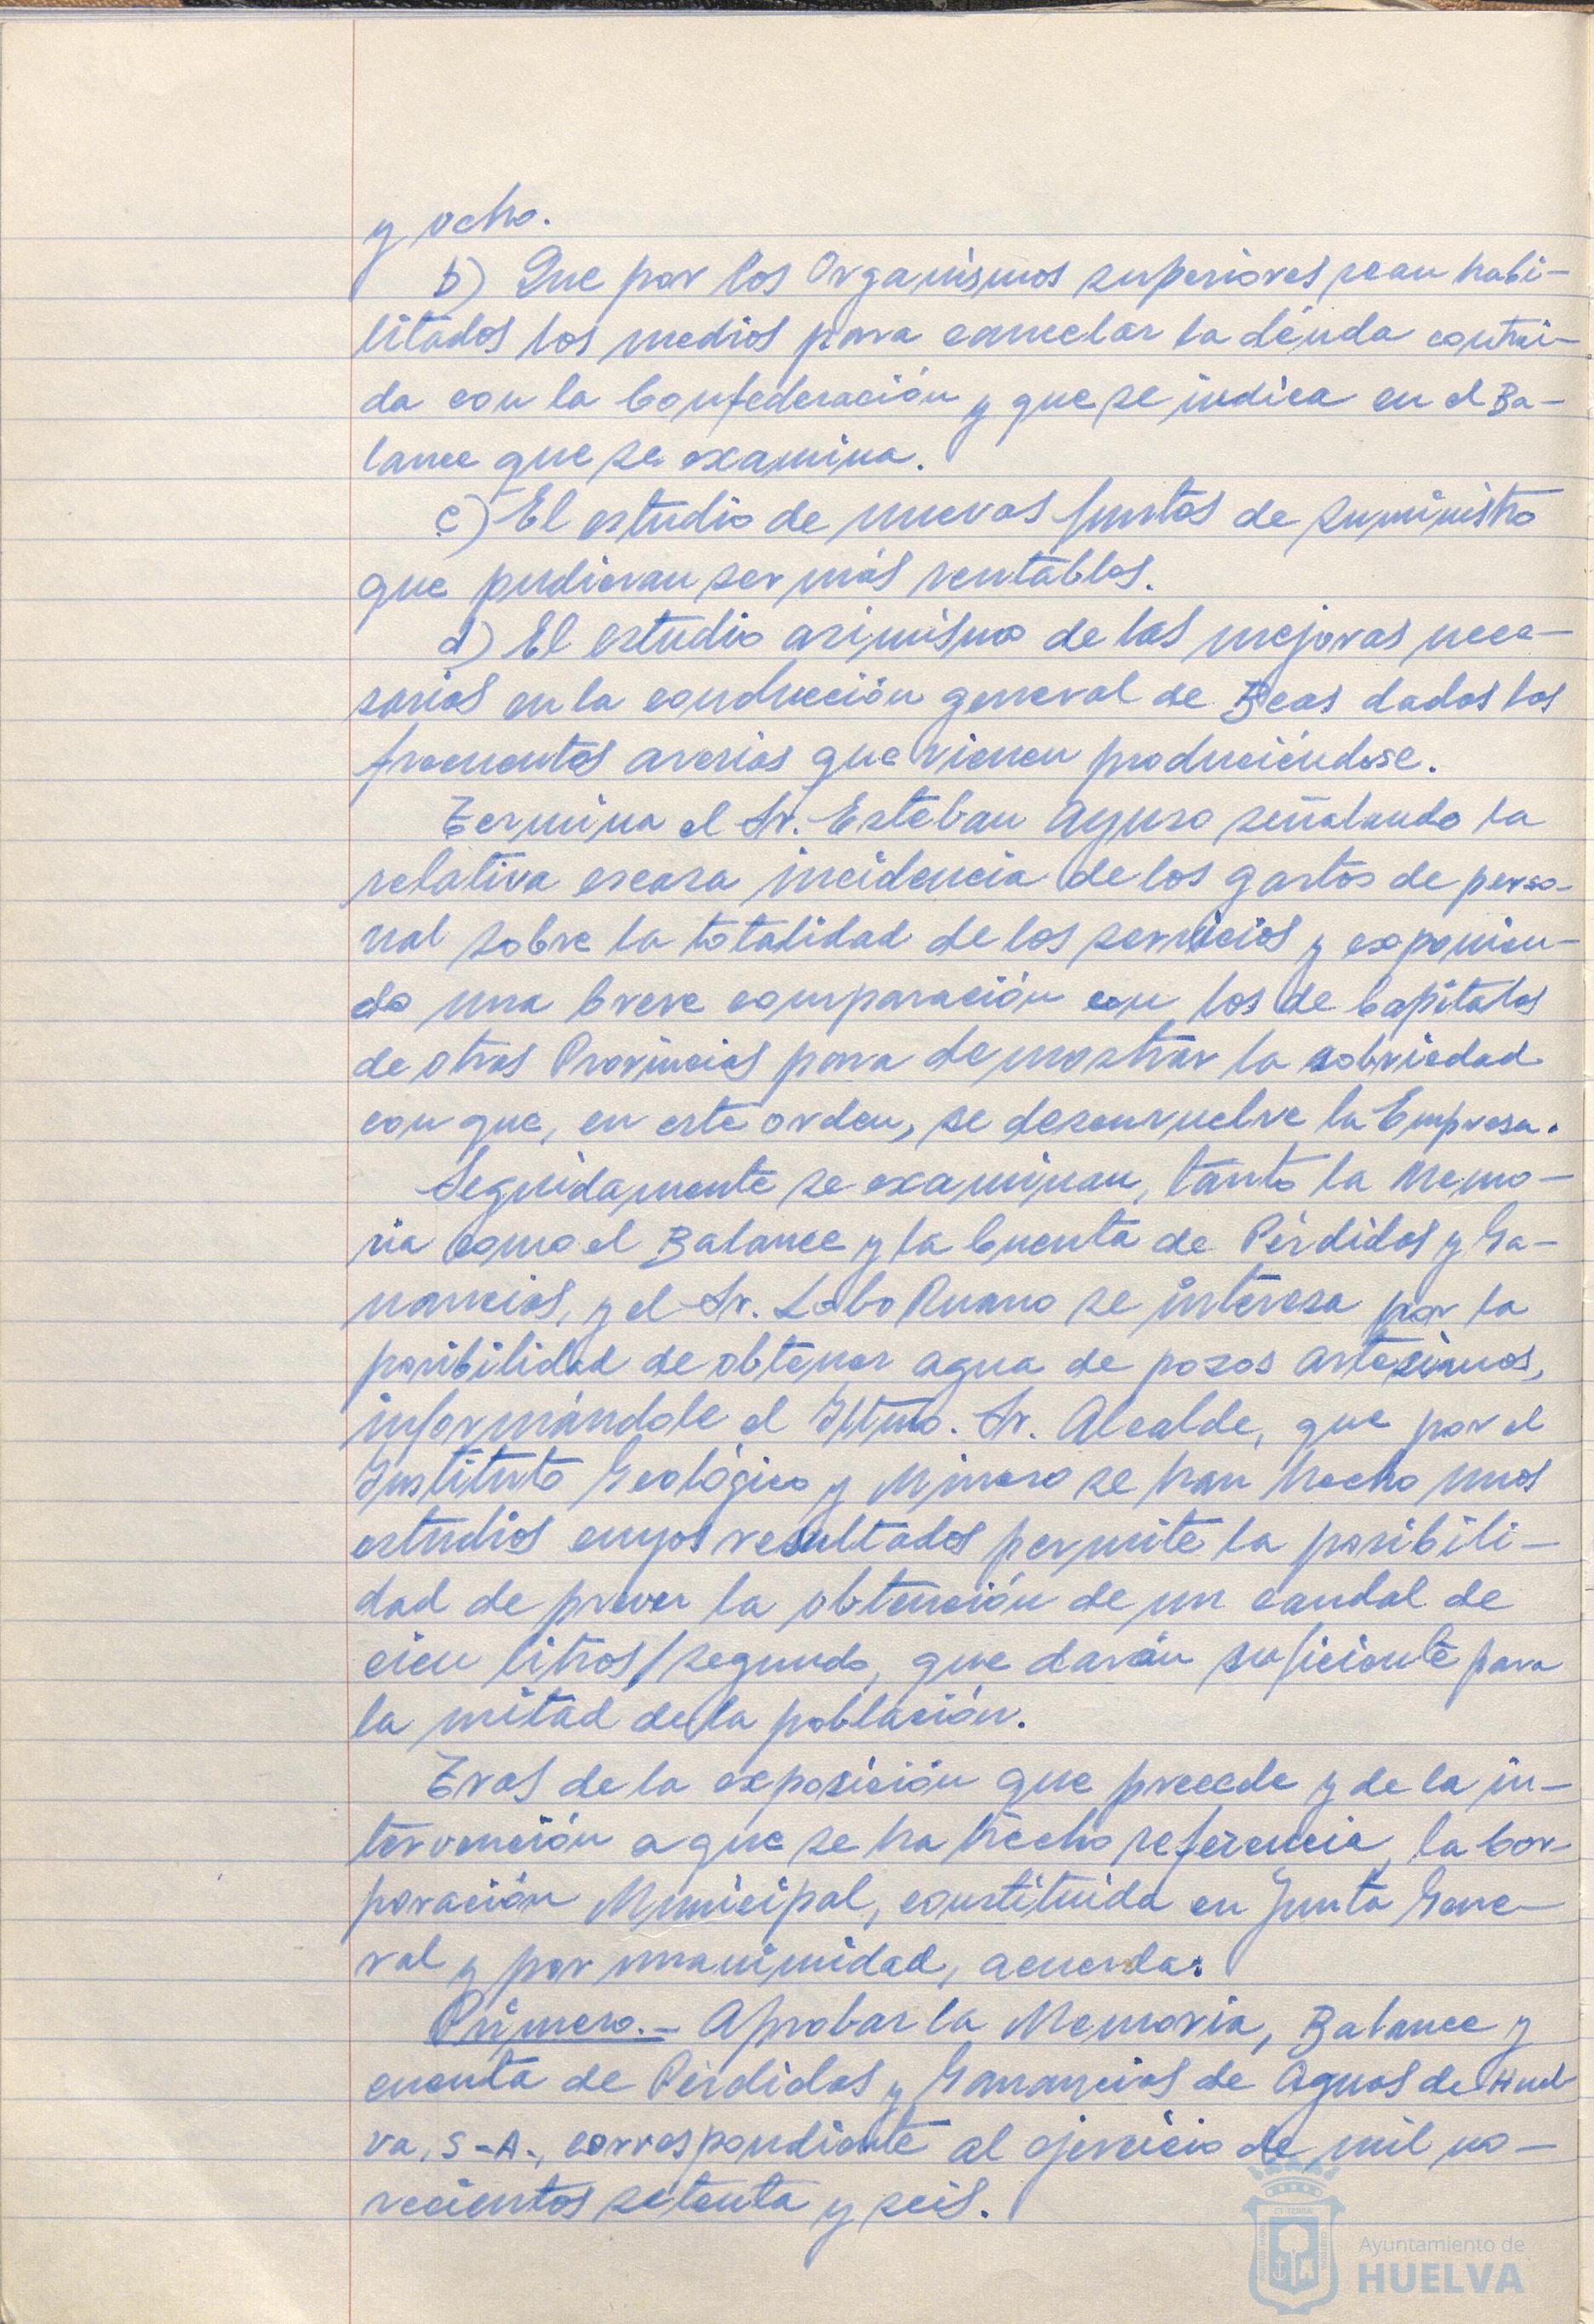 y ocho.
b) Que por los Organismos superiores sean habi-
litados los medios para cancelar la deuda contrai-
da con la Confederación y que se indica en el Ba-
lance que se examina.
c) El estudio de nuevos puntos de suministro
que pudieran ser más rentables.
d) El estudio asimismo de las mejoras nece-
sarias en la conducción general de Beas dados los
frecuentes averías que vienen produciéndose.
Termina el Sr. Esteban Ayuso señalando la
relativa escasa incidencia de los gastos de perso-
nal sobre la totalidad de los servicios y exponien-
do una breve comparación con los de Capitales
de otras Provincias para demostrar la sobriedad
con que, en este orden, se desenvuelve la Empresa.
Seguidamente se examinan, tanto la Memo-
ria como el Balance y la Cuenta de Pérdidas y Ga-
nancias, y el Sr. Lobo Ruano se interesa por la
posibilidad de obtener agua de pozos artesianos,
informándole el Iltmo. Sr. Alcalde, que por el
Instituto Geológico y Minero se han hecho unos
estudios cuyos resultados permite la posibili-
dad de prever la obtención de un caudal de
cien litros/segundo, que darán suficiente para
la mitad de la población.
Tras de la exposición que precede y de la in-
tervención a que se ha hecho referencia, la Cor-
poración Municipal, constituida en Junta Gene-
ral y por unanimidad, acuerda:
Primero.- Aprobar la Memoria, Balance y
cuenta de Pérdidas y Ganancias de Aguas de Huel-
va, S-A-, correspondiente al ejercicio de mil no-
vecientos setenta y seis.
Ayuntamiento de
HUELVA